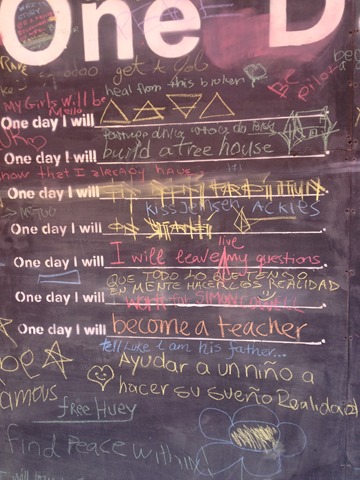 One D
get a Job
heal from this broken
Be Pilot
My Girls will be
One day I will
One day I will build a tree house
know that I already have..
One day I will
Kiss Jensen Ackles
One day I will
One day I will leave my questions
live
QUE TODO LO QUE TENGO
EN MENTE HACERLOS REALIDAD
One day I will work for SIMON COWELL
One day I will become a teacher
tell Luke i am his father...
be
famous
Ayudar a un niño a
hacer su sueño Realidad
free Huey
find Peace within